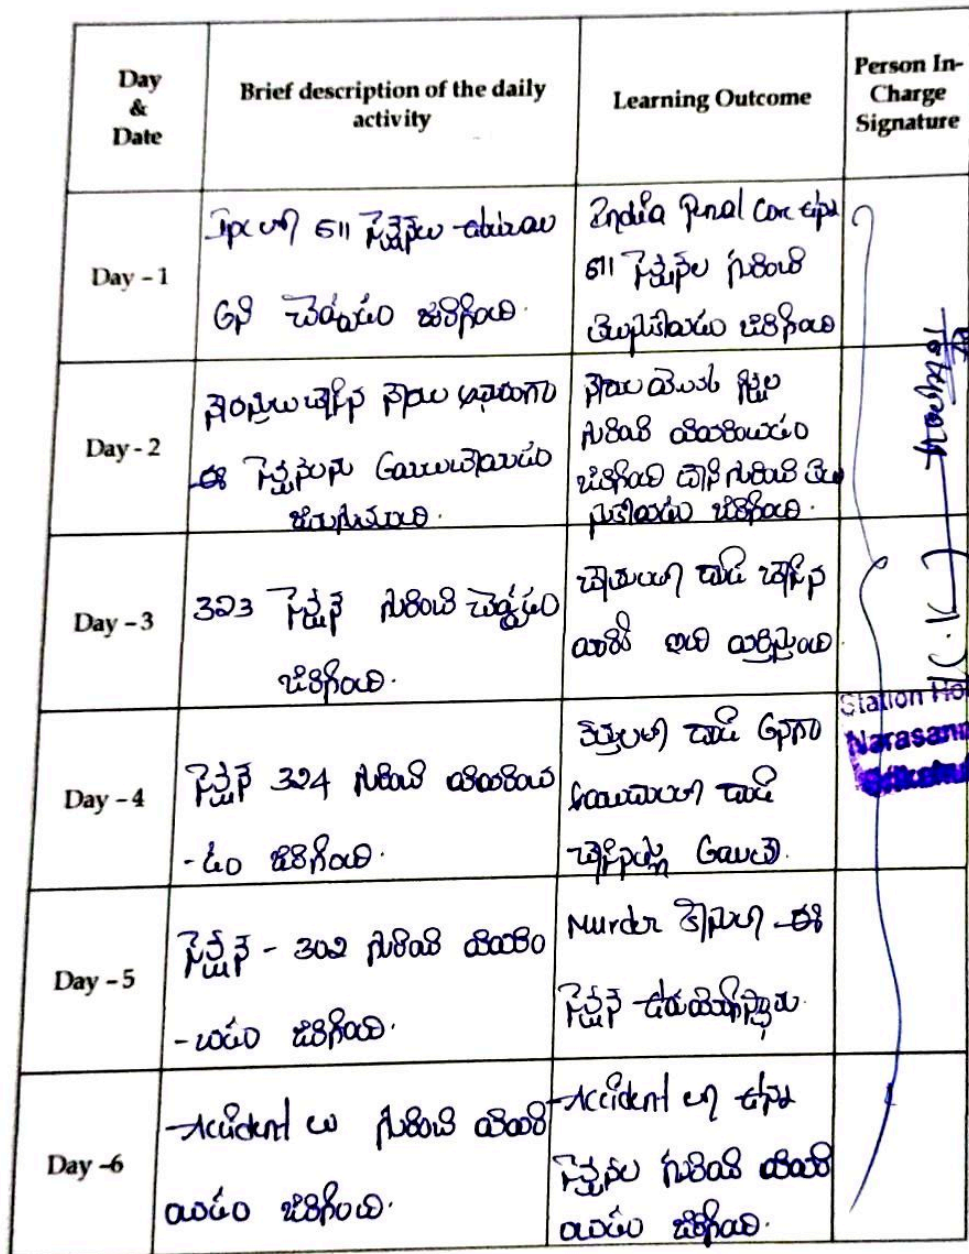 Day
&
Date
Brief description of the daily
activity
Learning Outcome
Person In-
Charge
Signature
Day - 1
Ipc లో 511 సెక్షన్లు ఉంటాయి
అని చెప్పడం జరిగింది.
India Penal Code ఉన్న
511 సెక్షన్ల గురించి
తెలుసుకోవడం జరిగింది
Day - 2
చేసిన నేరం ఆధారంగా
ఈ సెక్షన్లను అమలుచేయడం
జరుగుతుంది.
నేరం యొక్క శిక్షల
గురించి వివరించడం
జరిగింది దాని గురించి తెలు
సుకోవడం జరిగింది.
Day - 3
323 సెక్షన్ గురించి చెప్పడం
జరిగింది.
చేతులతో దాడి చేసిన
వారికి ఇది వర్తిస్తుంది
Day - 4
సెక్షన్ 324 గురించి వివరించ
- డం జరిగింది.
కత్తులతో దాడి అనగా
ఆయుధాలతో దాడి
Day - 5
సెక్షన్ - 302 గురించి వివరిం
- చడం జరిగింది.
Murder కేసులో ఈ
సెక్షన్ ఉపయోగిస్తారు.
Day -6
Accident లు గురించి వివరి
ంచడం జరిగింది.
Accident లో ఉన్న
సెక్షన్ల గురించి వివరి
ంచడం జరిగింది.
Station Ho
Narasann